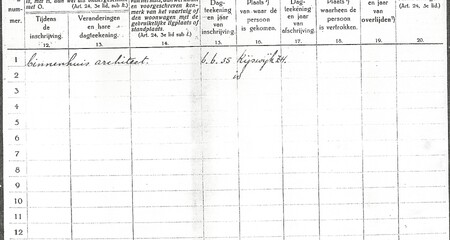 num-
mer.
Tijdens
de
inschrijving.
12.
Veranderingen
en hare
dagteekening.
(Art. 24, 3e lid sub b.)
13.
kenmerk van het vaartuig of
den woonwagen met de
gebruikelijke ligplaats of
standplaats.
(Art. 24, 3e lid, sub d.)
14.
Dag-
teekening
en jaar
van
inschrijving.
15.
Plaats
van waar de
persoon
is gekomen.
16.
Dag-
teekening
en jaar
van
vertrek.
17.
Plaats
waarheen de
persoon
is vertrokken.
18.
en jaar
van
overlijden
19.
(Art. 24, 3e lid.)
20.
1 binnenhuis architect. 6.6.35 Rijswijk ZH.
2
3
4
5
6
7
8
9
10
11
12